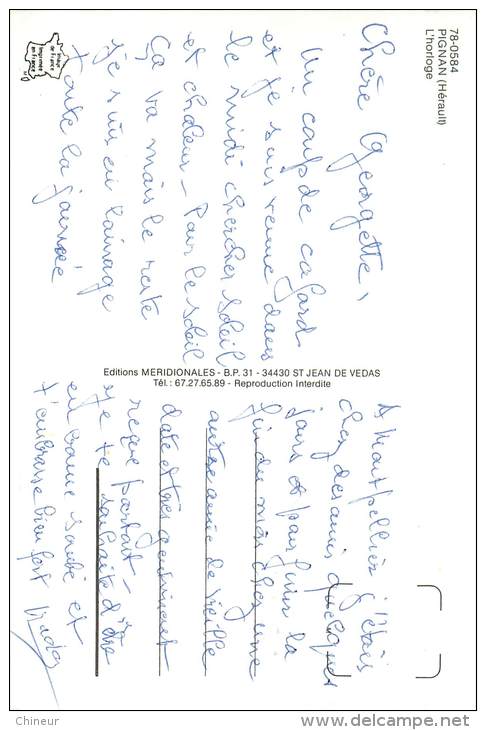 78-0584
PIGNAN (Hérault)
L'horloge
Chère Georgette,
Un coup de cafard
et je suis venue dans
le midi chercher soleil
et chaleur - Pour le soleil
Ça va mais le reste
je suis en lainage
toute la journée
Editions MERIDIONALES - B.P. 31 - 34430 ST JEAN DE VEDAS
Tél. : 67.27.65.89 - Reproduction Interdite
A Montpellier j'étais
chez des amis quelques
jours et pour finir la
fin du mois chez une
autre amie de vieille
date et très gentiment
reçue partout -
Je te souhaite d'être
en bonne santé et
t'embrasse bien fort
Image de France
Imprimée en France
Chineur
delcampe.net